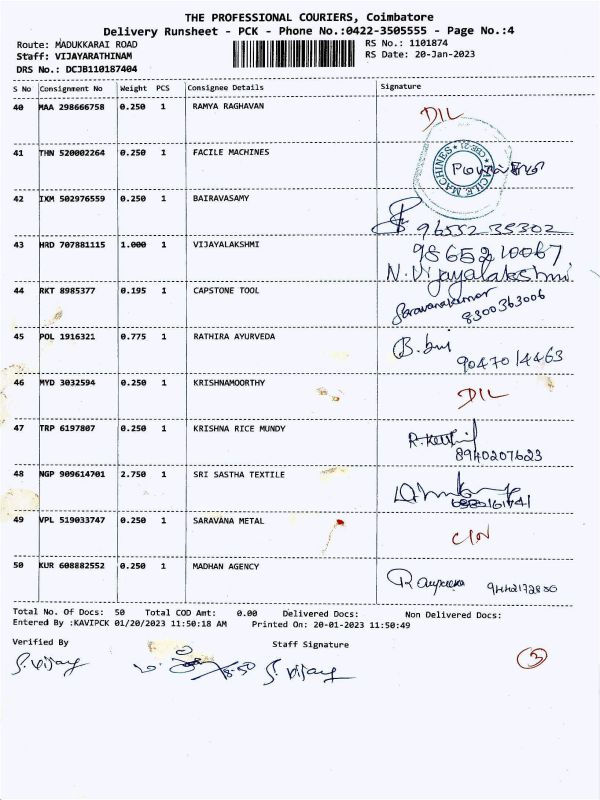 THE PROFESSIONAL COURIERS, Coimbatore
Delivery Runsheet - PCK - Phone No.:0422-3505555 - Page No.:4
Route: MADUKKARAI ROAD RS No.: 1101874
Staff: VIJAYARATHINAM RS Date: 20-Jan-2023
DRS No.: DCJB110187404
S No Consignment No Weight PCS Consignee Details Signature
40 MAA 298666758 0.250 1 RAMYA RAGHAVAN DIL
41 THN 520002264 0.250 1 FACILE MACHINES
FACILE MACHINES
42 IXM 502976559 0.250 1 BAIRAVASAMY
9655235302
43 HRD 707881115 1.000 1 VIJAYALAKSHMI 9865210067
N.Vijayalakshmi
44 RKT 8985377 0.195 1 CAPSTONE TOOL Saravanakumar
8300363006
45 POL 1916321 0.775 1 RATHIRA AYURVEDA
9047014463
46 MYD 3032594 0.250 1 KRISHNAMOORTHY DIL
47 TRP 6197807 0.250 1 KRISHNA RICE MUNDY
8940207623
48 NGP 909614701 2.750 1 SRI SASTHA TEXTILE
49 VPL 519033747 0.250 1 SARAVANA METAL CIN
50 KUR 608882552 0.250 1 MADHAN AGENCY
Total No. Of Docs: 50 Total COD Amt: 0.00 Delivered Docs: Non Delivered Docs:
Entered By :KAVIPCK 01/20/2023 11:50:18 AM Printed On: 20-01-2023 11:50:49
Verified By Staff Signature
S. Vijay S. Vijay
3